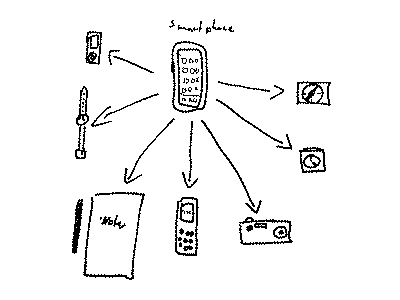 Smartphone
Note